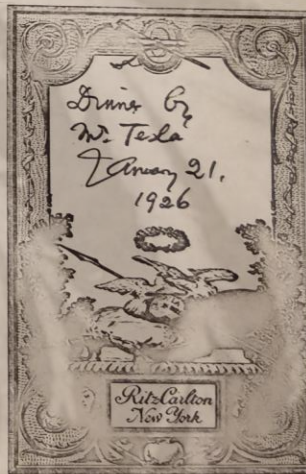 Dinner by
Mr. Tesla
January 21,
1926
Ritz-Carlton
New York